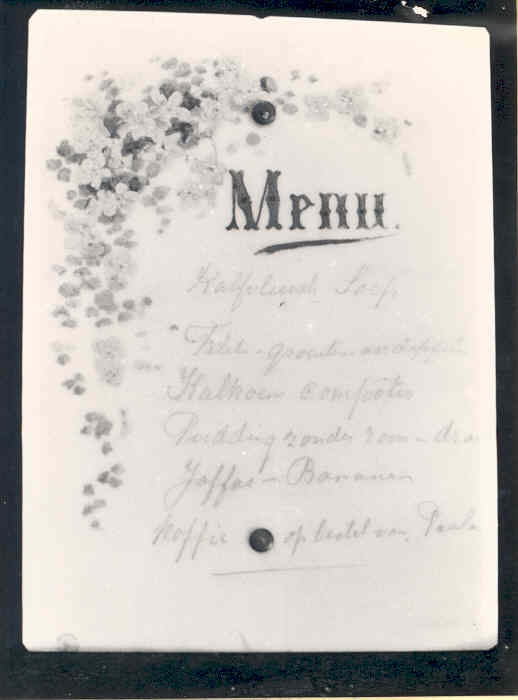 Menu.
Kalfvleesch Soep
Filet - groenten
Kalkoen compôte
Pudding zonder room
Jaffas - Bananen
Koffie op bestel van Paula